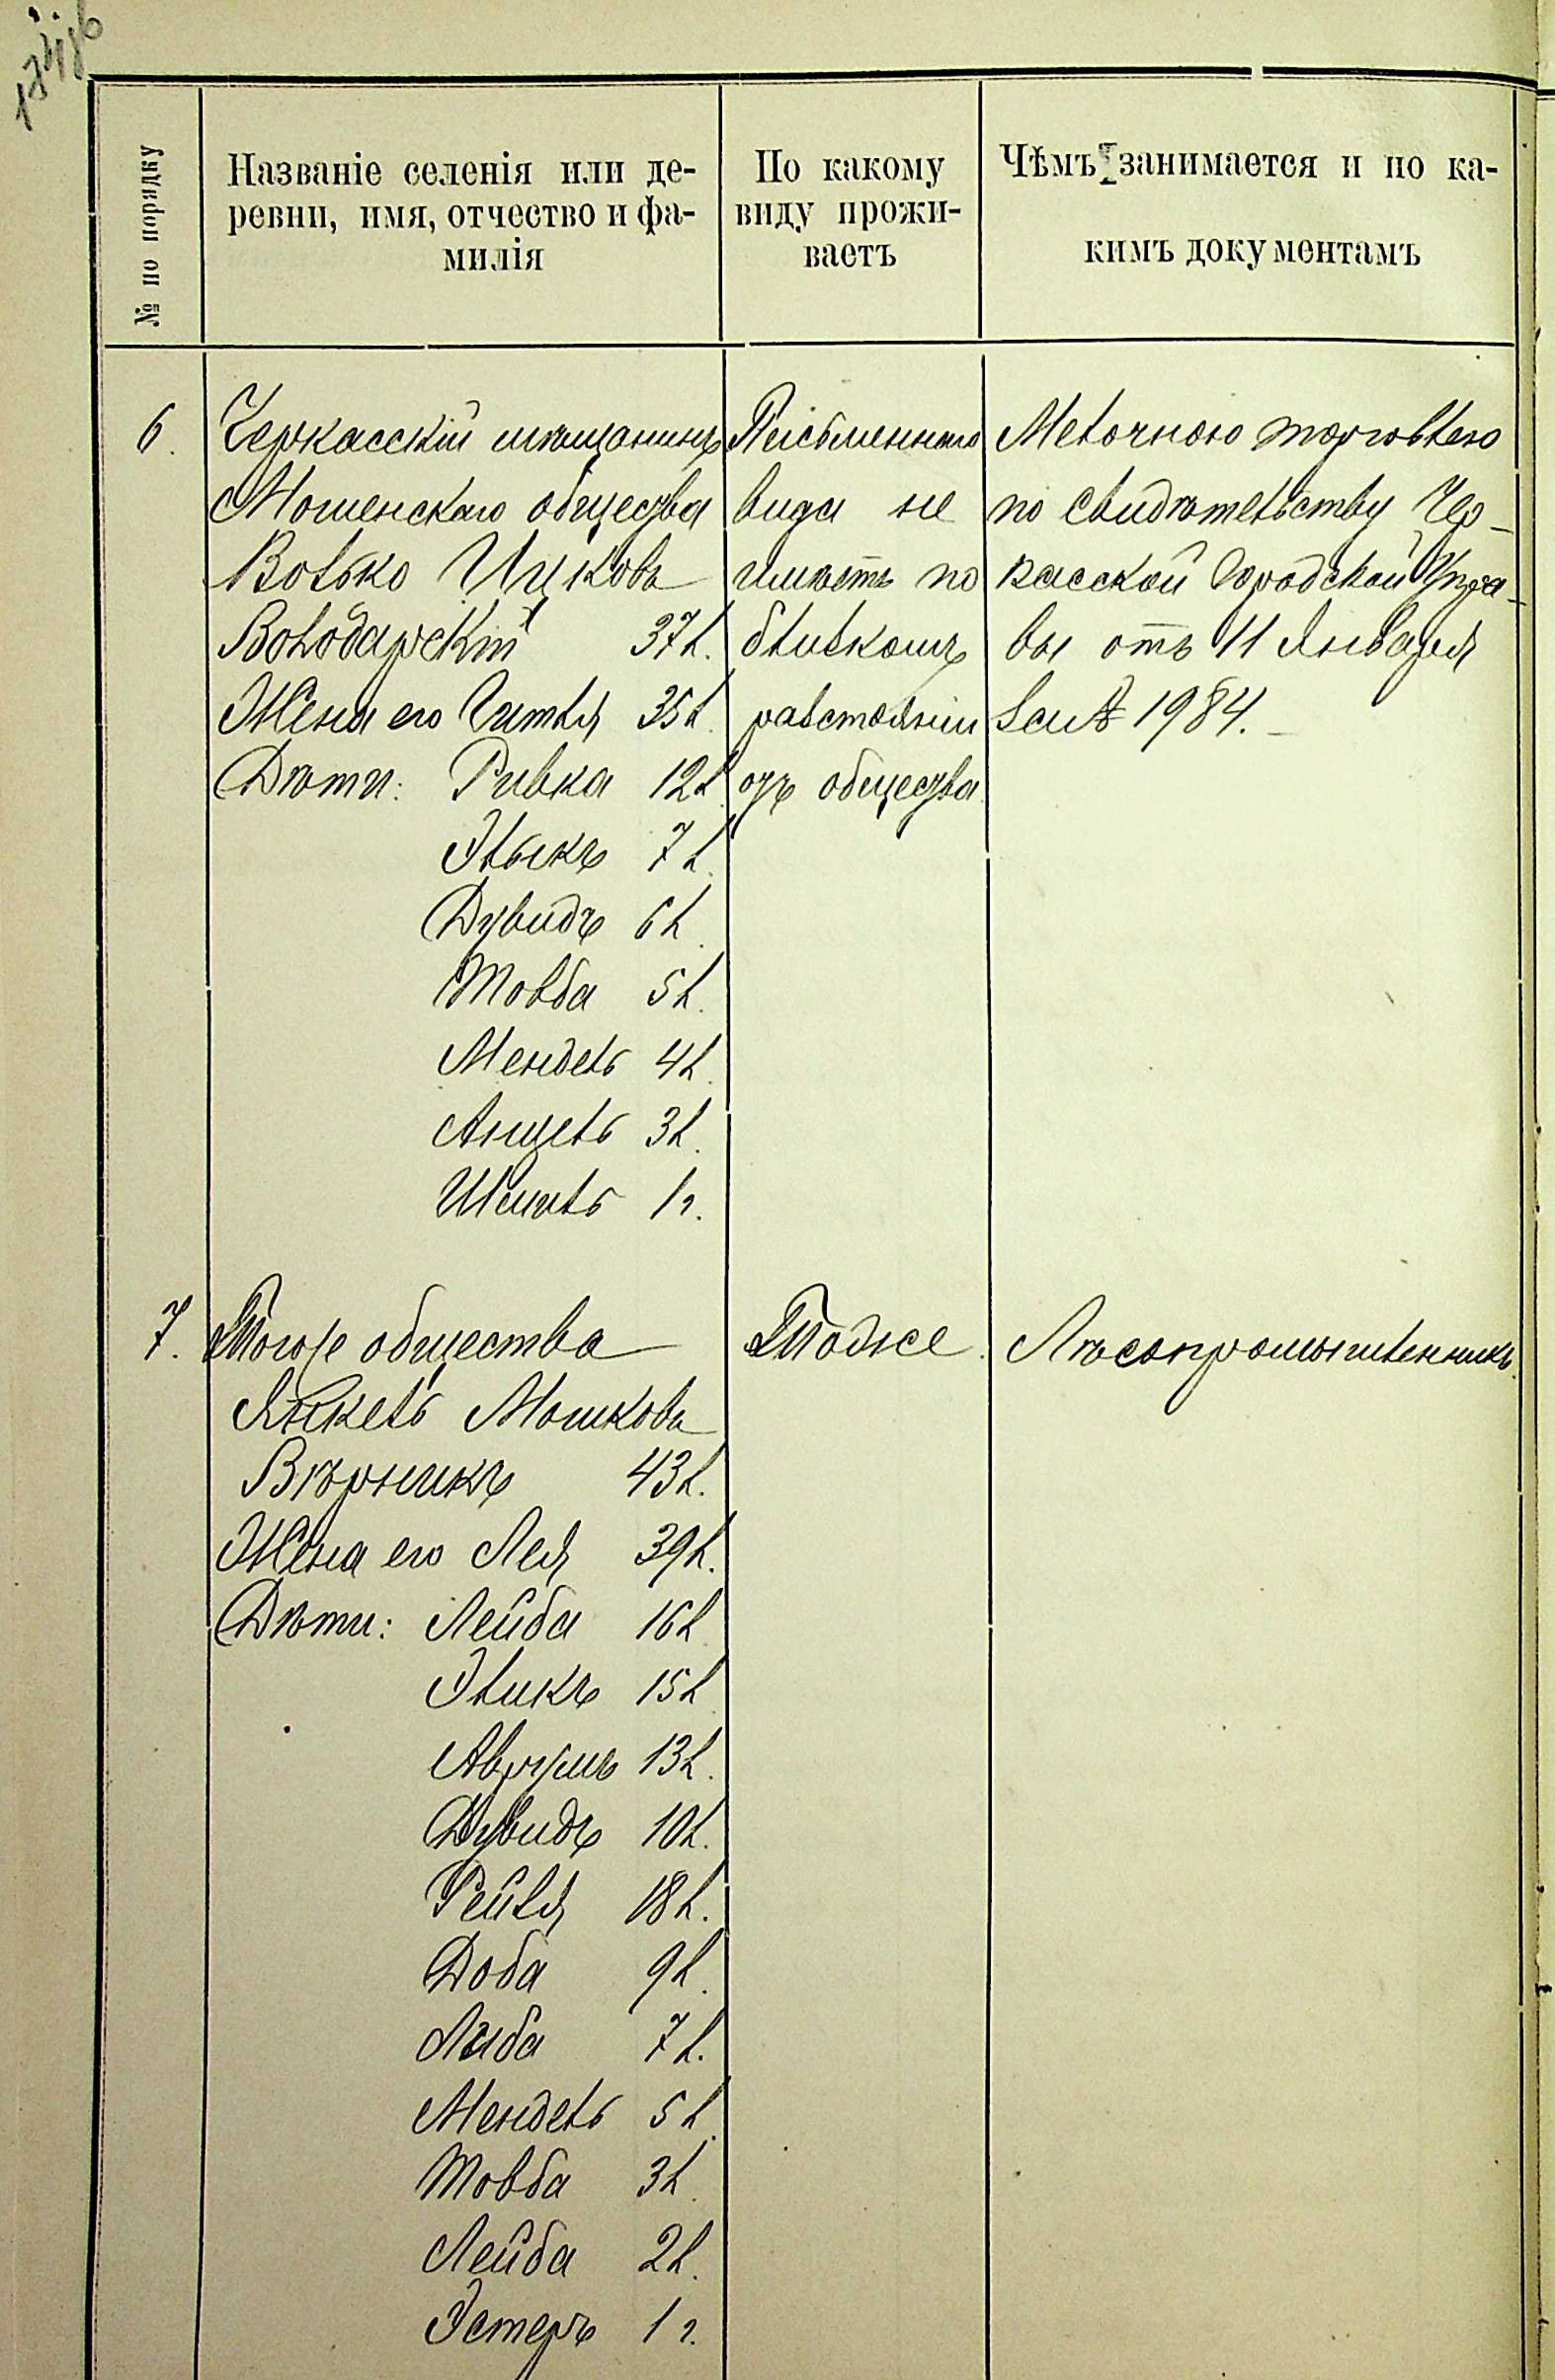 № по порядку
Названіе селенія или де-
ревни, имя, отчество и фа-
милія
По какому
виду прожи-
ваетъ
Чѣмъ занимается и по ка-
кимъ документамъ
6.
Черкасскій мѣщанинъ
Мошенскаго общества
Волько Ицковъ
Володарскій 37 л.
Жена его Гитля 35 л.
Дѣти: Ривка 12 л.
Элыкъ 7 л.
Дувидъ 6 л.
Товба 5 л.
Мендель 4 л.
Анцель 3 л.
Шмиль 1 г.
Письменнаго
вида не
имѣетъ по
близкомъ
разстояніи
отъ общества
Мелочною торговлею
по свидѣтельству Чер-
касской Городской Упра-
вы отъ 11 Января
за № 1984.
7.
Тогоже общества
Янкель Мошковъ
Вѣрникъ 43 л.
Жена его Лея 39 л.
Дѣти: Лейба 16 л.
Эликъ 15 л.
Аврумъ 13 л.
Дувидъ 10 л.
Рейзя 18 л.
Доба 9 л.
Либа 7 л.
Мендель 5 л.
Товба 3 л.
Лейба 2 л.
Эстеръ 1 г.
Тоже
Лѣсопромышленникъ